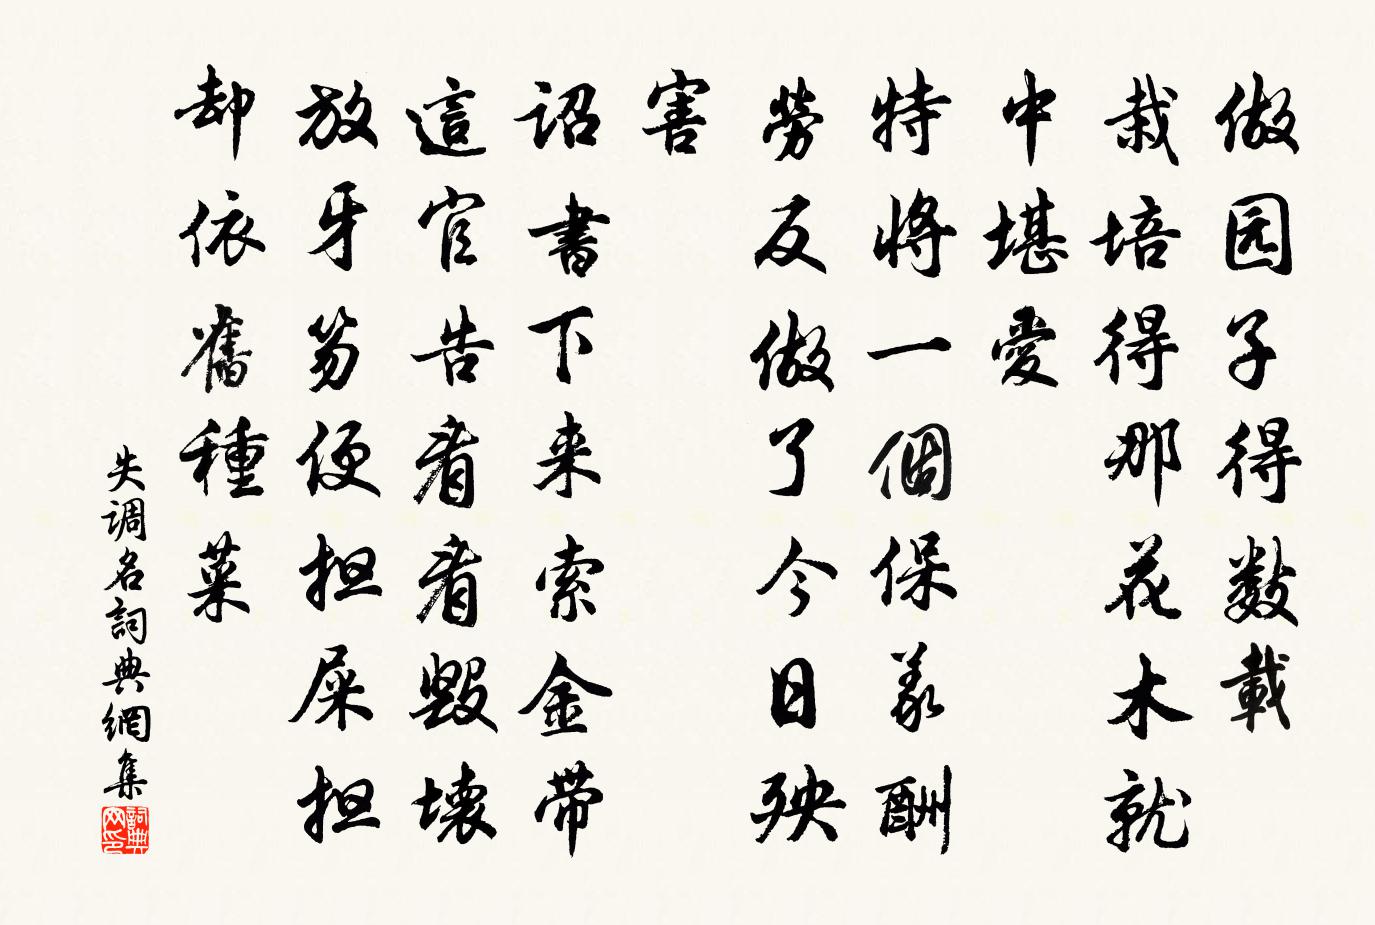 做园子得数載
栽培得那花木就
中堪愛
特將一個保義酬
勞反做了今日殃
害
詔書下来索金带
這官告看看毀壞
放牙笏便担屎担
却依舊種菜
失调名詞典網集
詞典網印